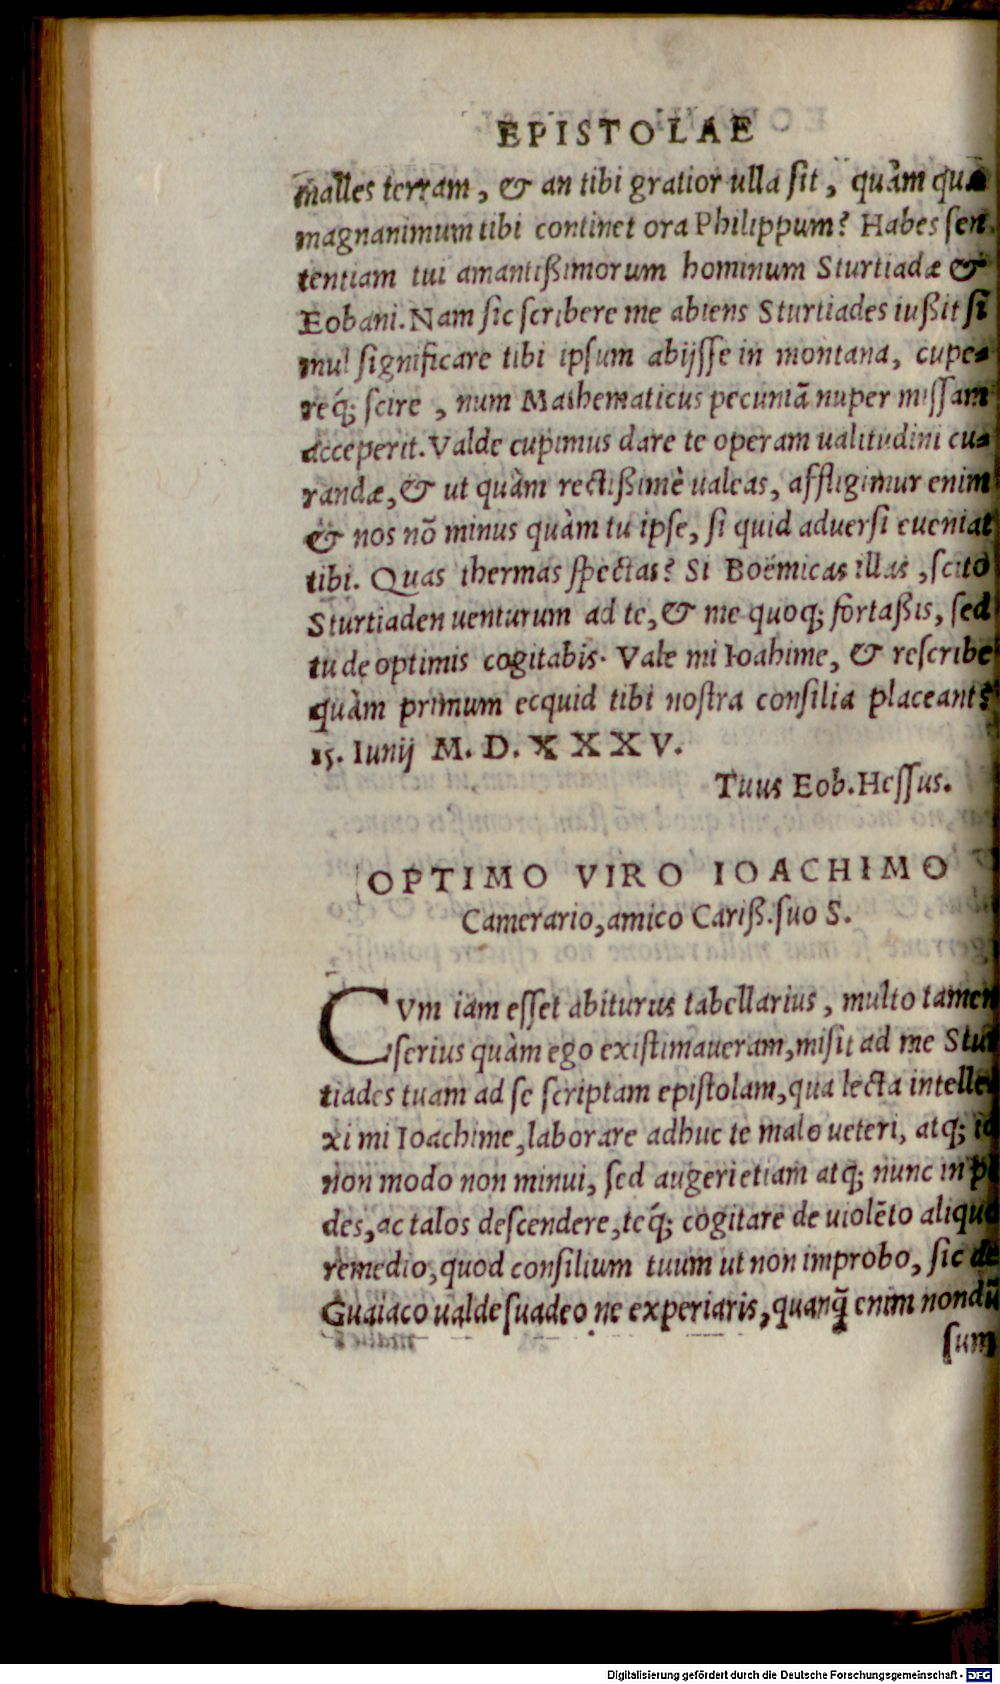 EPISTOLAE
malles terram, & an tibi gratior ulla sit, quàm quæ
magnanimum tibi continet ora Philippum? Habes sen-
tentiam tui amantißimorum hominum Sturtiadæ &
Eobani. Nam sic scribere me abiens Sturtiades iußit si
mul significare tibi ipsum abijsse in montana, cupe-
req́; scire, num Mathematicus pecuniā nuper missam
acceperit. Valde cupimus dare te operam ualitudini cu-
randæ, & ut quàm rectißimè ualeas, affligimur enim
& nos nō minus quàm tu ipse, si quid aduersi eueniat
tibi. Quas thermas spectas? Si Boëmicas illas, scito
Sturtiaden uenturum ad te, & me quoq; fortaßis, sed
tu de optimis cogitabis. Vale mi Ioahime, & rescribe
quàm primum ecquid tibi nostra consilia placeant?
15. Iunij M. D. XXXV.
Tuus Eob. Hessus.
OPTIMO VIRO IOACHIMO
Camerario, amico Cariß. suo S.
CVm iam esset abiturus tabellarius, multo tamen
serius quàm ego existimaueram, misit ad me Stur
tiades tuam ad se scriptam epistolam, qua lecta intelle
xi mi Ioachime, laborare adhuc te malo ueteri, atq; id
non modo non minui, sed augeri etiam atq; nunc in pe
des, ac talos descendere, teq́; cogitare de uiolēto aliquo
remedio, quod consilium tuum ut non improbo, sic de
Guaiaco ualde suadeo ne experiaris, quanq̃ enim nondū
sum
Digitalisierung gefördert durch die Deutsche Forschungsgemeinschaft - DFG